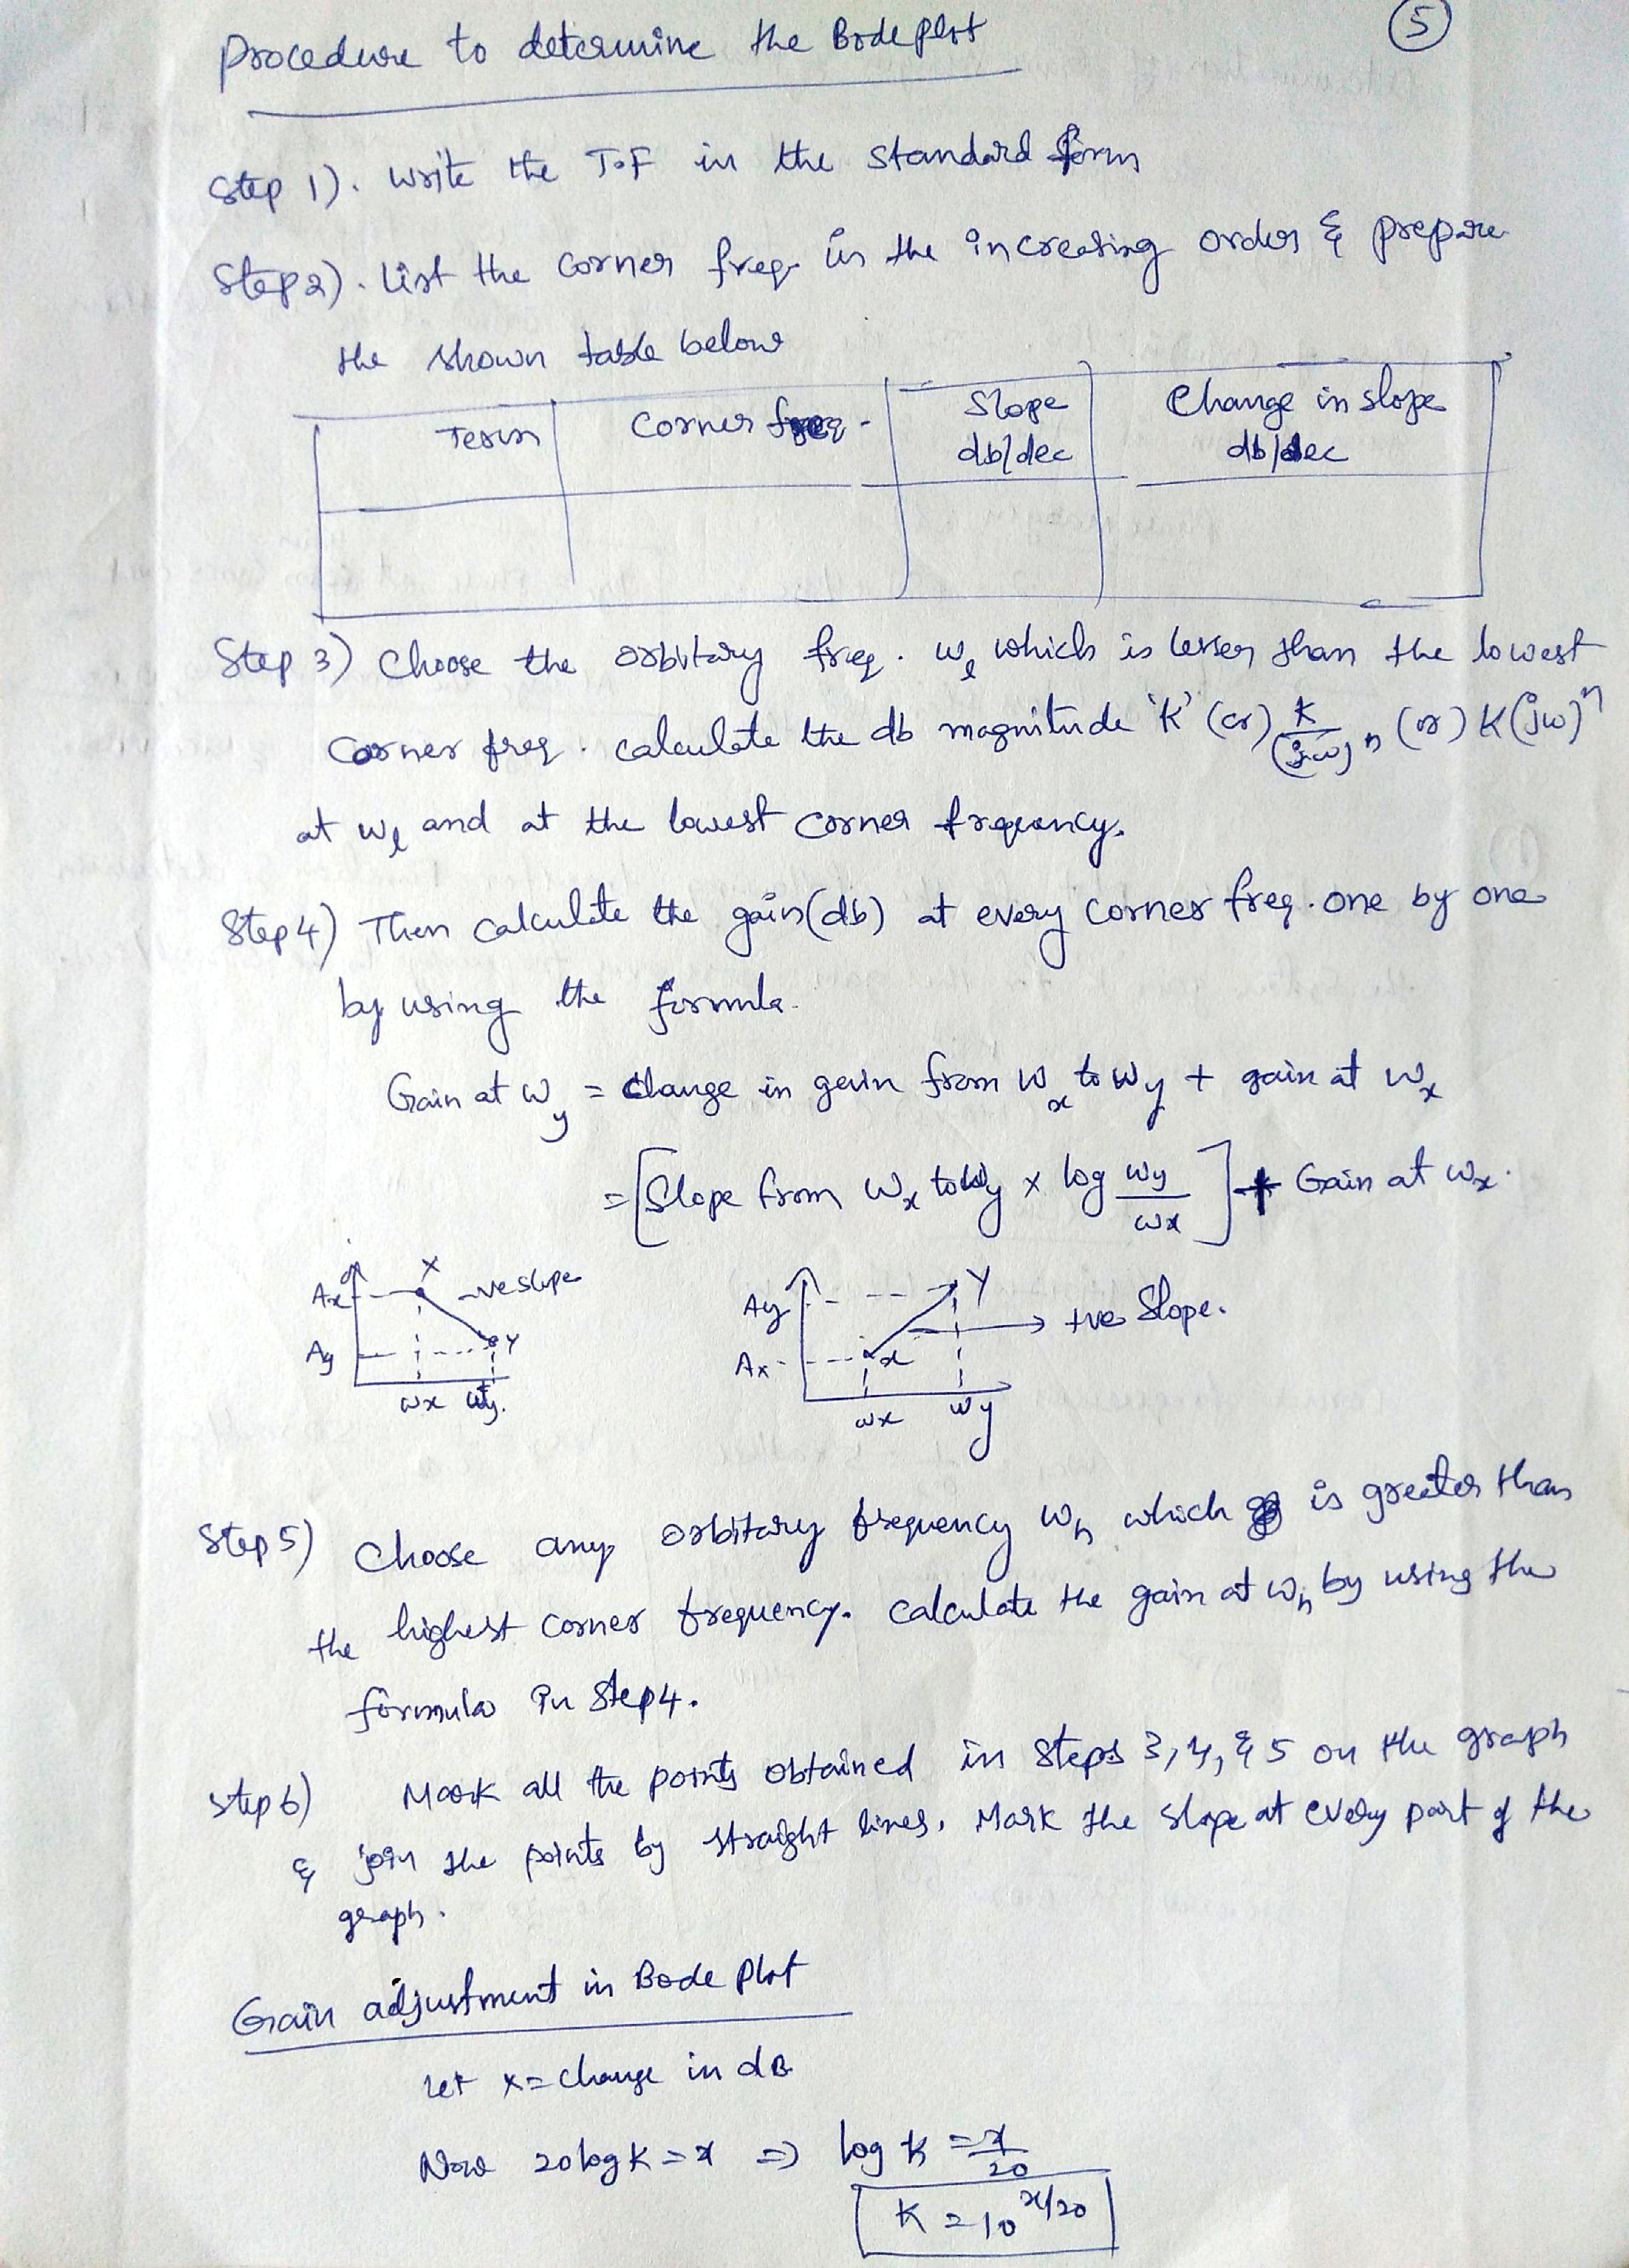 5
Procedure to determine the Bode plot
Step 1). Write the T.F in the standard form
Step 2). List the corner freq. in the increasing order & prepare
the shown table below
Term | Corner freq. | Slope db/dec | Change in slope db/dec
Step 3) Choose the orbitary freq. ωl which is lesser than the lowest
corner freq. calculate the db magnitude 'K' (or) K/(jω)^n (or) K(jω)^n
at ωl and at the lowest corner frequency.
Step 4) Then calculate the gain(db) at every corner freq. one by one
by using the formula.
Gain at ωy = change in gain from ωx to ωy + gain at ωx
= [Slope from ωx to ωy × log ωy/ωx] + Gain at ωx.
Ax X -ve slope
Ay Y
ωx ωy.
Ay Y
+ve Slope.
Ax x
ωx ωy
Step 5) Choose any orbitary frequency ωh which is greater than
the highest corner frequency. calculate the gain at ωh by using the
formula in step 4.
Step 6) Mark all the points obtained in steps 3, 4, & 5 on the graph
& join the points by straight lines. Mark the slope at every part of the
graph.
Gain adjustment in Bode plot
Let x = change in dB
Now 20 log K = x ⇒ log K = x/20
K = 10^x/20